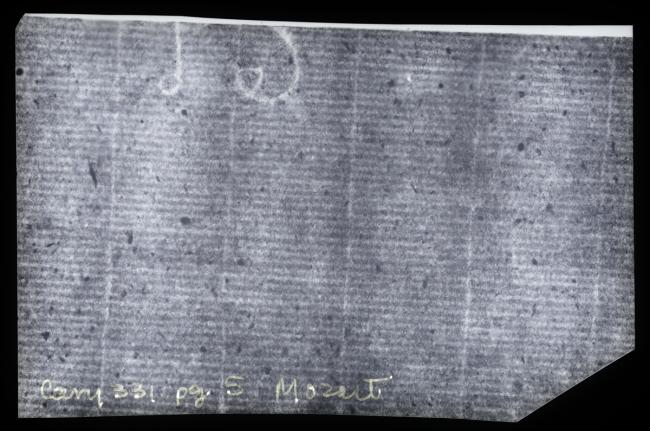 Cary 331 pg. 5 Mozart